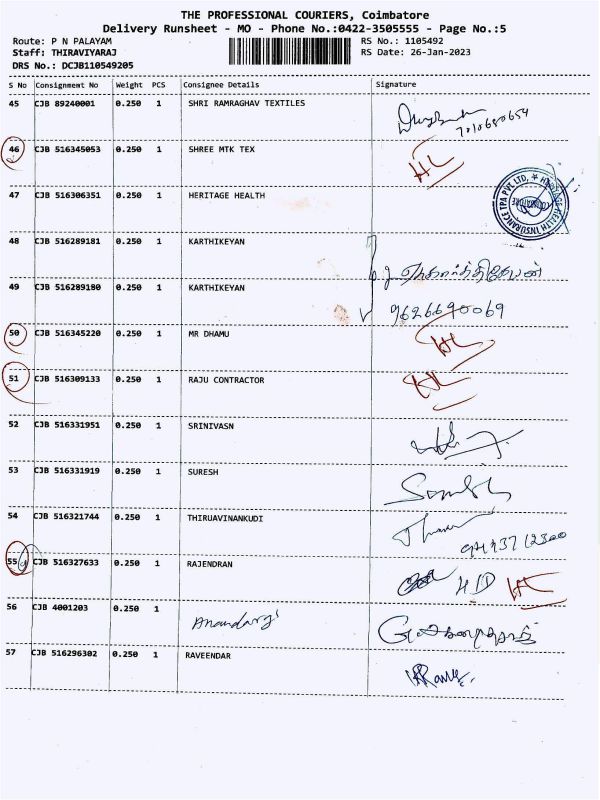 THE PROFESSIONAL COURIERS, Coimbatore
Delivery Runsheet - MO - Phone No.:0422-3505555 - Page No.:5
Route: P N PALAYAM RS No.: 1105492
Staff: THIRAVIYARAJ RS Date: 26-Jan-2023
DRS No.: DCJB110549205
S No Consignmemt No Weight PCS Consignee Details Signature
45 CJB 89240001 0.250 1 SHRI RAMRAGHAV TEXTILES
7010680654
46 CJB 516345053 0.250 1 SHREE MTK TEX HL
47 CJB 516306351 0.250 1 HERITAGE HEALTH
HERITAGE HEALTH INSURANCE TPA PVT LTD,
48 CJB 516289181 0.250 1 KARTHIKEYAN
49 CJB 516289180 0.250 1 KARTHIKEYAN
9626690069
50 CJB 516345220 0.250 1 MR DHAMU HL
51 CJB 516309133 0.250 1 RAJU CONTRACTOR HL
52 CJB 516331951 0.250 1 SRINIVASN
53 CJB 516331919 0.250 1 SURESH
54 CJB 516321744 0.250 1 THIRUAVINANKUDI
55 CJB 516327633 0.250 1 RAJENDRAN HL
56 CJB 4001203 0.250 1 Anandaraj
57 CJB 516296302 0.250 1 RAVEENDAR